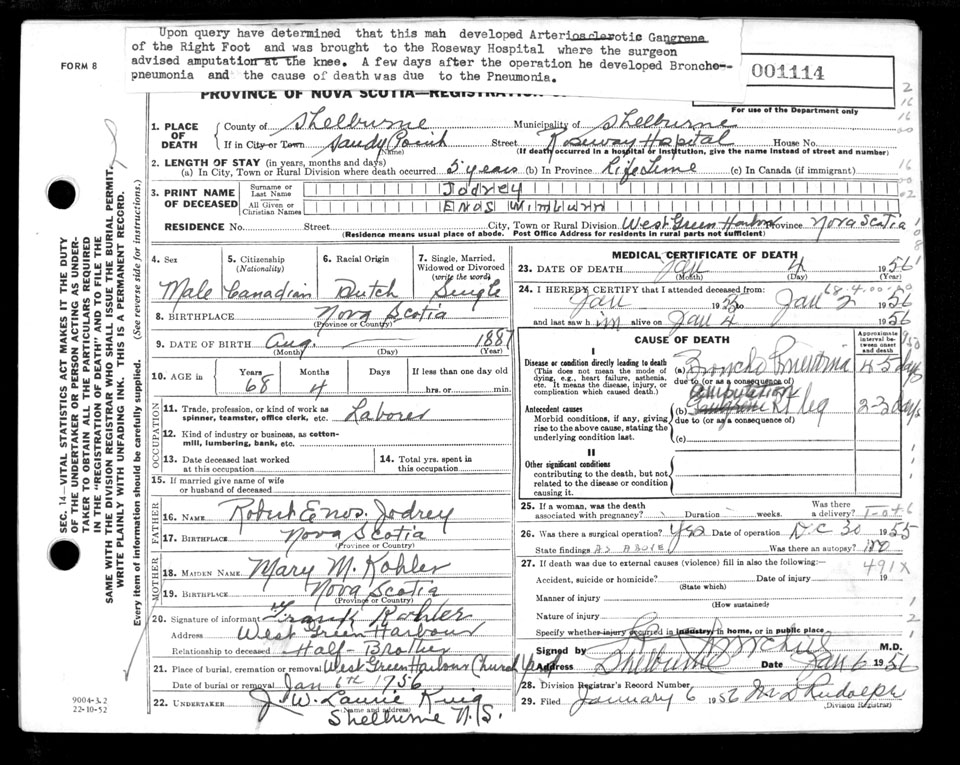 Upon query have determined that this mah developed Arteriosclerotic Gangrene
of the Right Foot and was brought to the Roseway Hospital where the surgeon
advised amputation at the knee. A few days after the operation he developed Broncho-
pneumonia and the cause of death was due to the Pneumonia.
FORM 8
001114
PROVINCE OF NOVA SCOTIA—REGISTRATION
For use of the Department only
1. PLACE OF DEATH
County of Shelburne Municipality of Shelburne
If in City or Town Sandy Point Street Roseway Hospital House No.
(Name) (If death occurred in a hospital or institution, give the name instead of street and number)
2. LENGTH OF STAY (in years, months and days)
(a) In City, Town or Rural Division where death occurred 5 years (b) In Province Lifetime (c) In Canada (if immigrant)
3. PRINT NAME OF DECEASED
Surname or Last Name Jodrey
All Given or Christian Names Enos Wimburn
RESIDENCE No. Street City, Town or Rural Division West Green Harbour Province Nova Scotia
(Residence means usual place of abode. Post Office Address for residents in rural parts not sufficient)
4. Sex Male
5. Citizenship (Nationality) Canadian
6. Racial Origin Dutch
7. Single, Married, Widowed or Divorced (write the word) Single
8. BIRTHPLACE Nova Scotia
(Province or Country)
9. DATE OF BIRTH Aug. 1887
(Month) (Day) (Year)
10. AGE in Years 68 Months 4 Days If less than one day old hrs. or min.
OCCUPATION
11. Trade, profession, or kind of work as spinner, teamster, office clerk, etc. Laborer
12. Kind of industry or business, as cotton-mill, lumbering, bank, etc.
13. Date deceased last worked at this occupation
14. Total yrs. spent in this occupation
15. If married give name of wife or husband of deceased
FATHER
16. NAME Robert Enos Jodrey
17. BIRTHPLACE Nova Scotia
(Province or Country)
MOTHER
18. MAIDEN NAME Mary M. Kohler
19. BIRTHPLACE Nova Scotia
(Province or Country)
20. Signature of informant Frank Kohler
Address West Green Harbour
Relationship to deceased Half-Brother
21. Place of burial, cremation or removal West Green Harbour Church
Date of burial or removal Jan 6th 1956
22. UNDERTAKER J. W. Laurie King
(Name and address)
Shelburne N.S.
MEDICAL CERTIFICATE OF DEATH
23. DATE OF DEATH Jan 4 1956
(Month) (Day) (Year)
24. I HEREBY CERTIFY that I attended deceased from:
Jan 19 to Jan 2 1956
and last saw him alive on Jan 4 1956
CAUSE OF DEATH
Approximate interval between onset and death
I
Disease or condition directly leading to death
(This does not mean the mode of dying, e.g., heart failure, asthenia, etc. It means the disease, injury, or complication which caused death.)
(a) Broncho Pneumonia 4-5 days
due to (or as a consequence of)
Antecedent causes
Morbid conditions, if any, giving rise to the above cause, stating the underlying condition last.
amputation
(b) Gangrene Rt leg 2-3 days
due to (or as a consequence of)
(c)
II
Other significant conditions
contributing to the death, but not related to the disease or condition causing it.
25. If a woman, was the death associated with pregnancy? Duration weeks. Was there a delivery?
26. Was there a surgical operation? Yes Date of operation Dec 30 1955
State findings AS ABOVE Was there an autopsy? no
27. If death was due to external causes (violence) fill in also the following:—
491X
Accident, suicide or homicide? Date of injury 19
(State which)
Manner of injury
(How sustained)
Nature of injury
Specify whether injury occurred in industry, in home, or in public place
Signed by M.D.
Address Shelburne Date Jan 6 1956
28. Division Registrar's Record Number
29. Filed January 6 1956 Rudolph
(Division Registrar)
SEC. 14—VITAL STATISTICS ACT MAKES IT THE DUTY
OF THE UNDERTAKER OR PERSON ACTING AS UNDER-
TAKER TO OBTAIN ALL THE PARTICULARS REQUIRED
IN THE "REGISTRATION OF DEATH" AND TO FILE THE
SAME WITH THE DIVISION REGISTRAR WHO SHALL ISSUE THE BURIAL PERMIT.
WRITE PLAINLY WITH UNFADING INK. THIS IS A PERMANENT RECORD.
Every item of information should be carefully supplied. (See reverse side for instructions.)
9004-3.2
22-10-52